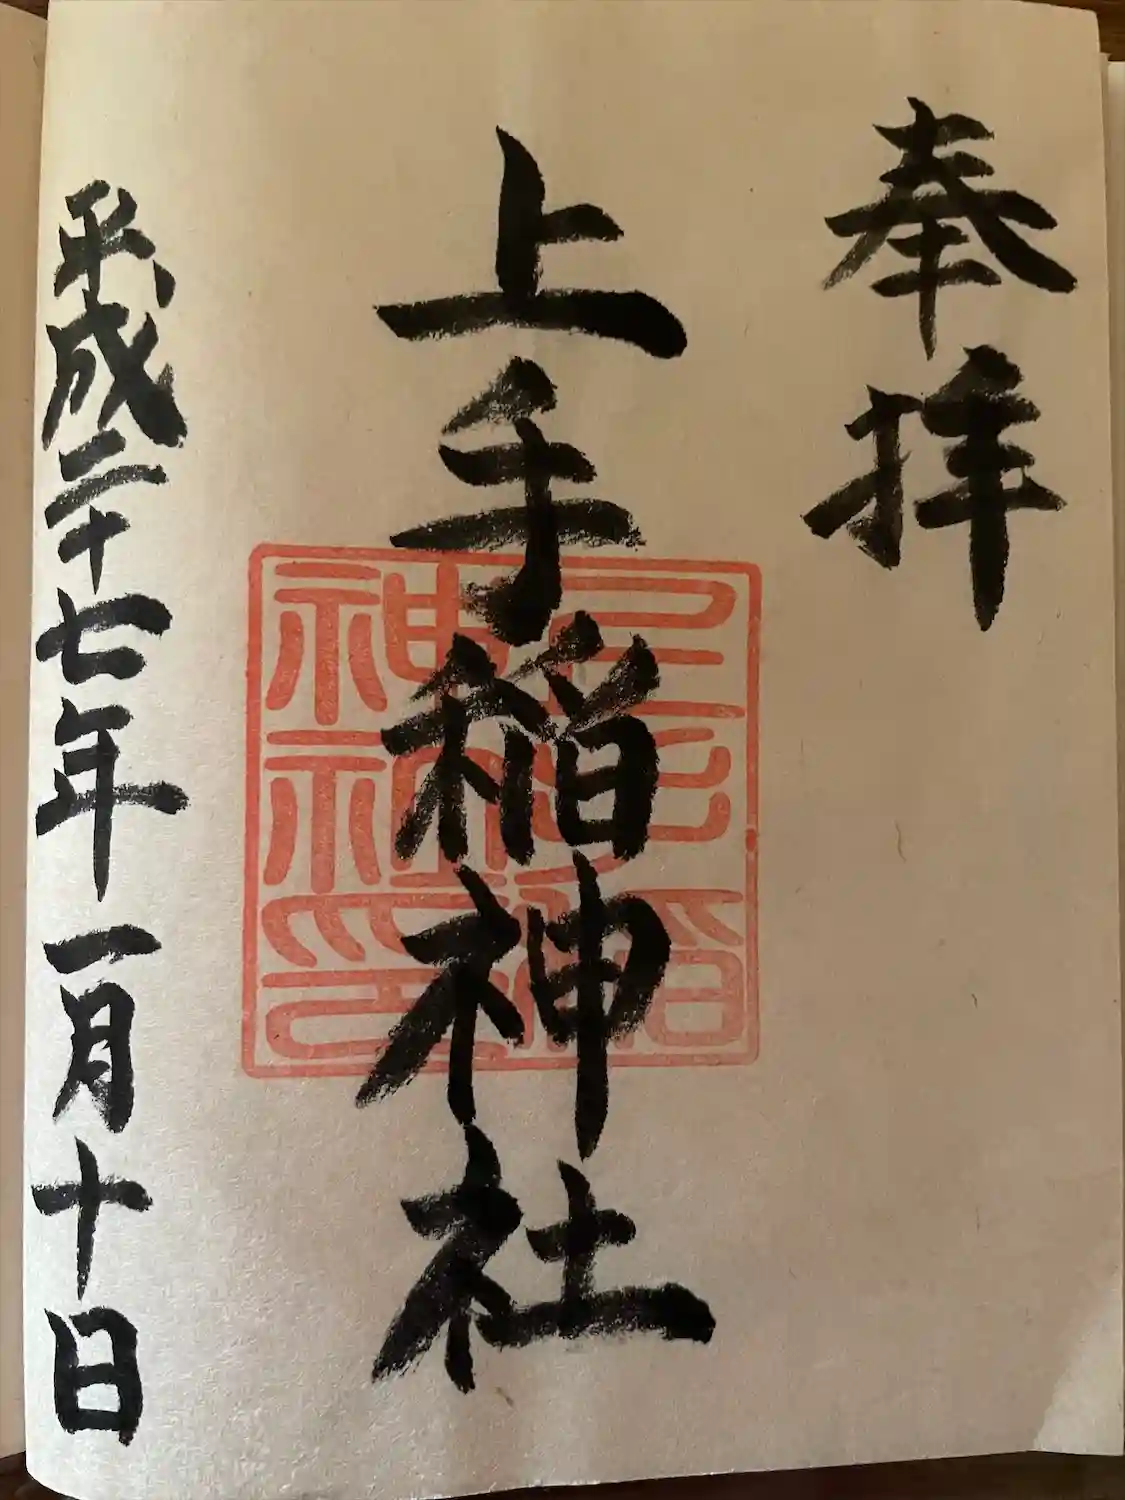 奉拝
上手稲神社
平成二十七年一月十日
上手稲
神社印